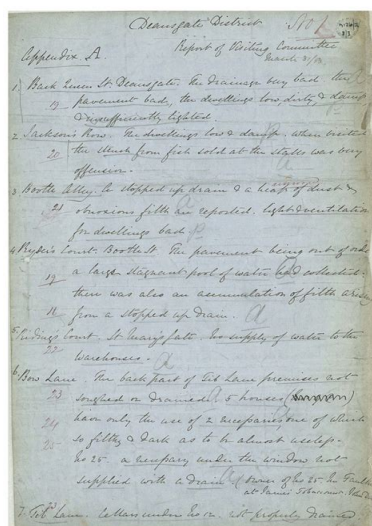 Deansgate District No 1
Report of Visiting Committee
Appendix A March 31/
1 Back Queen St. Deansgate. The drainage very bad the
19 pavement bad, the dwellings low, dirty & damp
& insufficiently lighted.
2 Jackson's Row. The dwellings low & damp. when visited
20 the stench from fish sold at the stalls was very
offensive.
3 Bootle Alley. A stopped up drain & a heap of dust &
21 obnoxious filth are reported. light & ventilation
for dwellings bad
4 Court. Bootle St. The pavement being out of order
19 a large stagnant pool of water had collected.
there was also an accumulation of filth arising
18 from a stopped up drain.
5 Court. St. Mary's Gate. No supply of water to the
22 warehouses.
6 Bow Lane. The back part of Tib Lane premises not
23 soughed or drained. 5 houses
24 have only the use of 2 one of which
25 so filthy & dark as to be almost useless.
No 25. a under the window not
supplied with a drain (owner of No 25.
at James
7 Tib Lane. Cellars under No 12. not properly drained